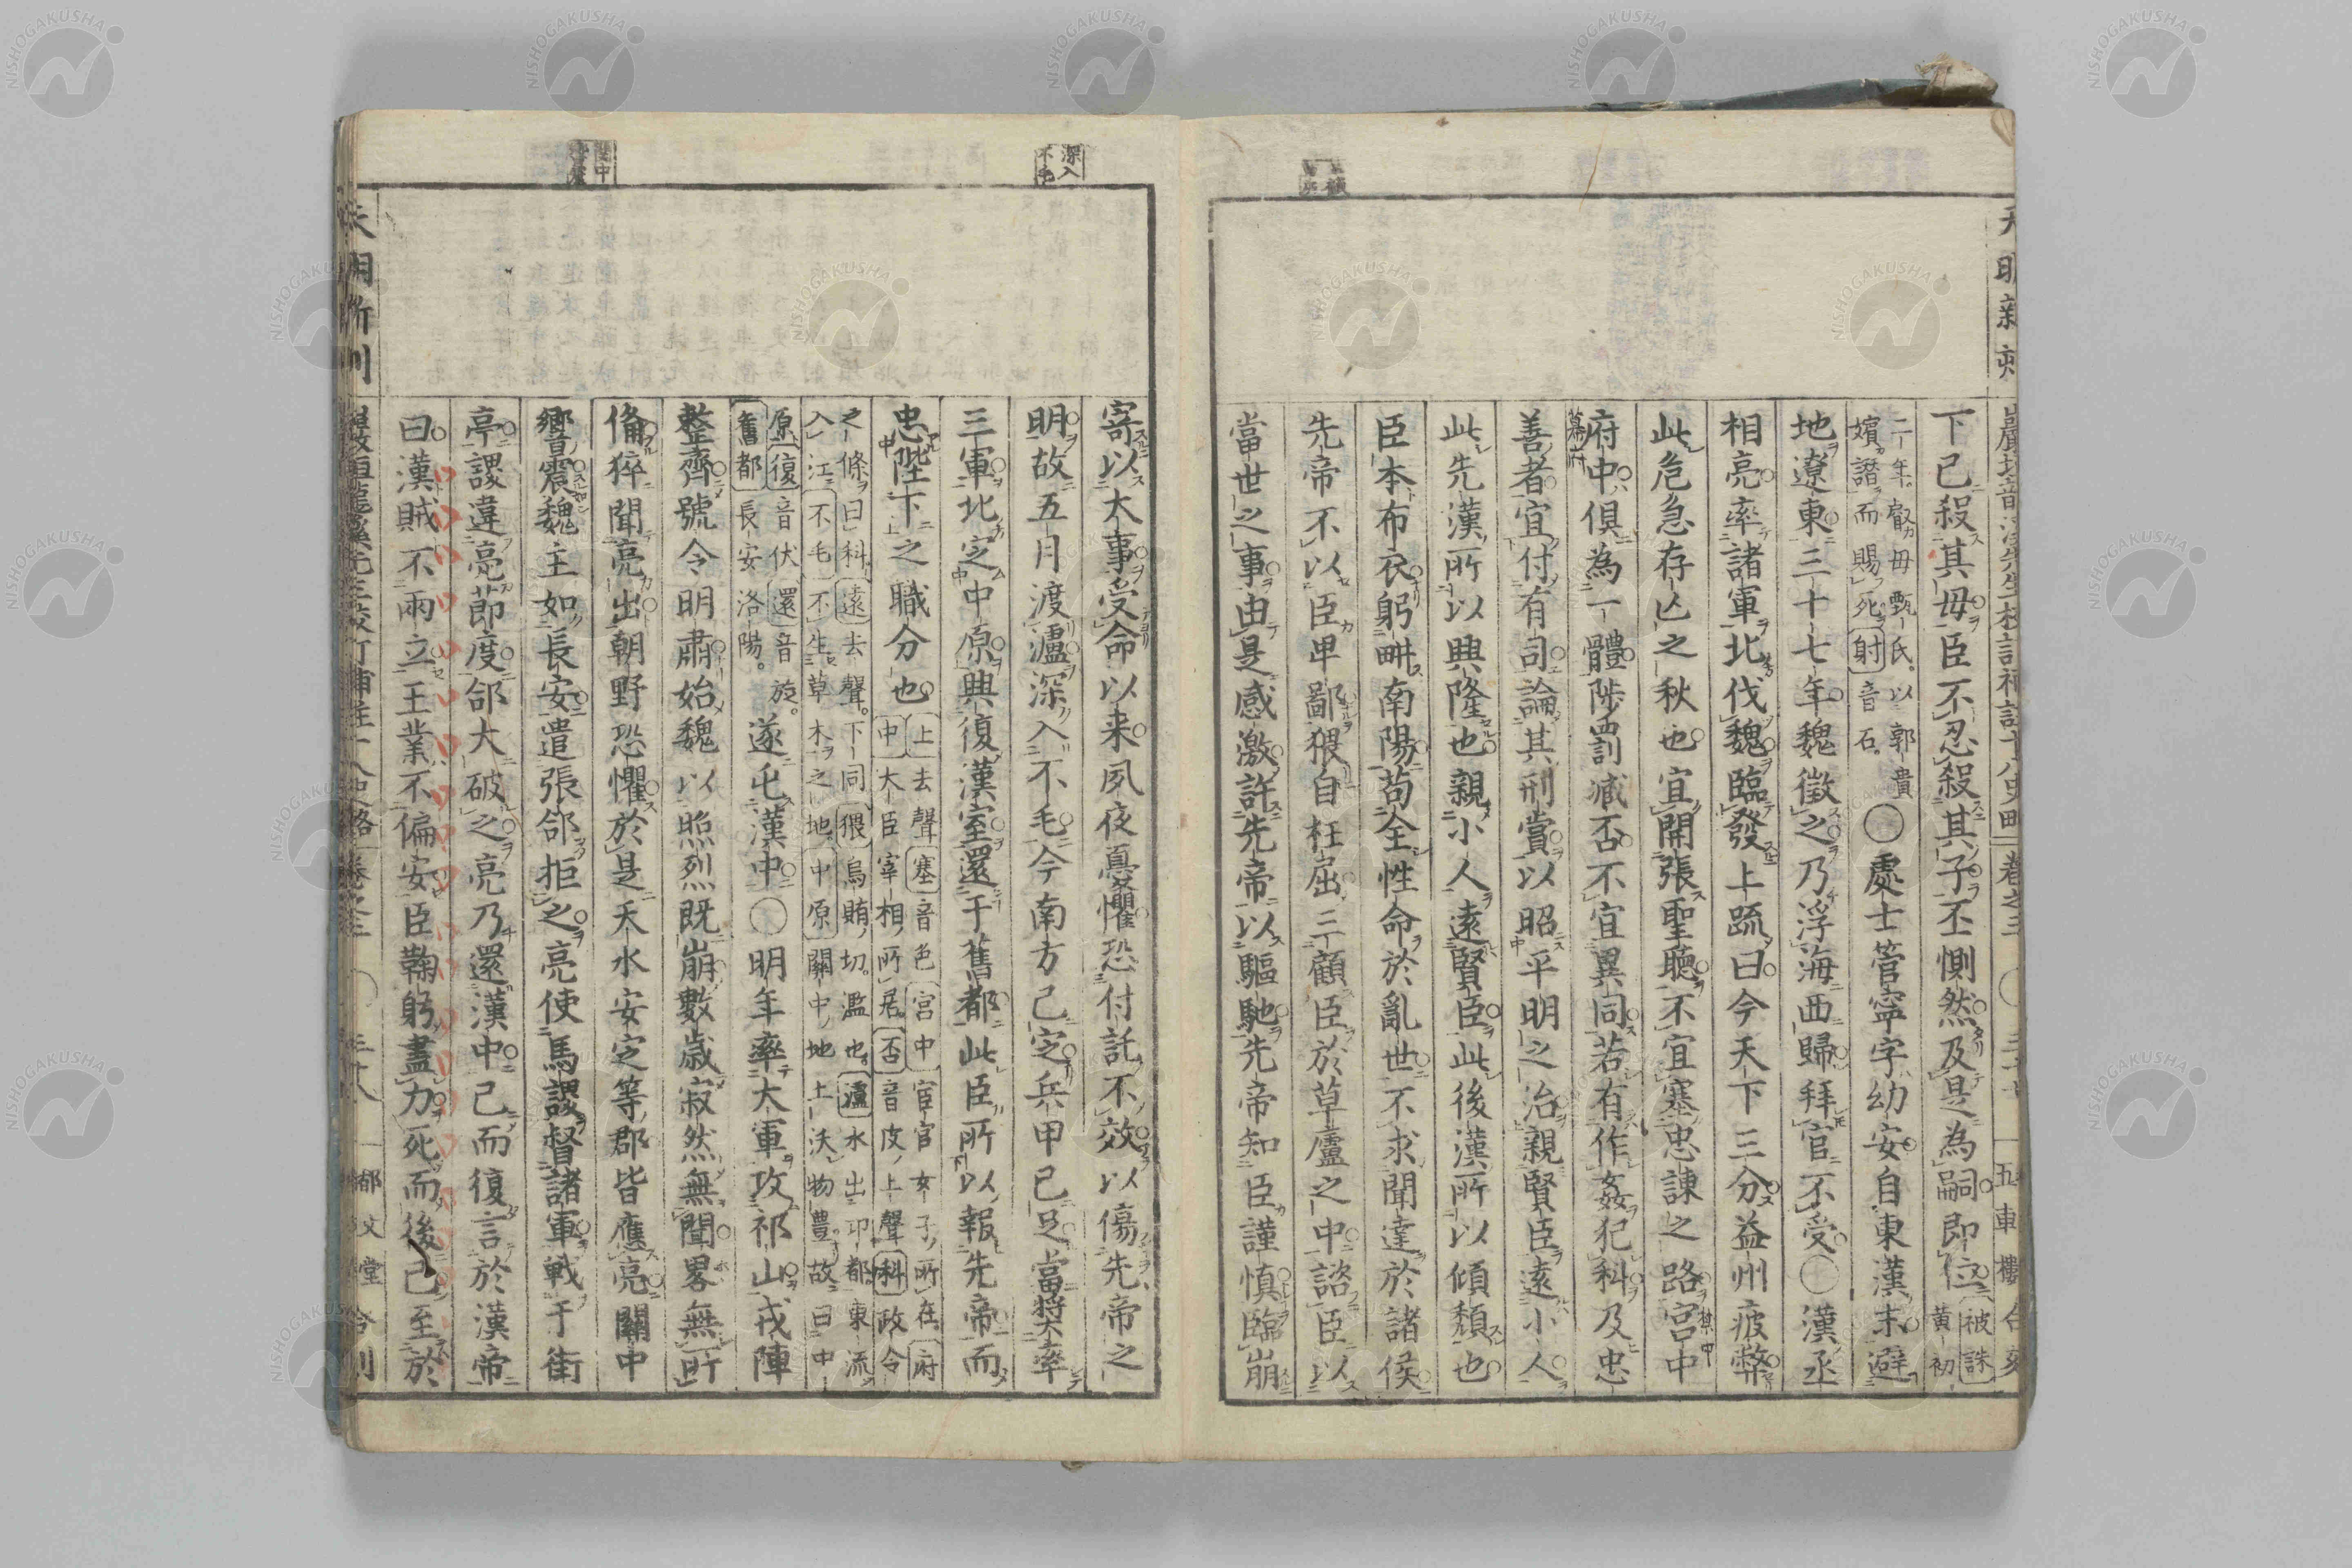 下已殺其母臣不忍殺其子丕惻然及是為嗣即位被誅黄初
二年叡母甄氏以郭貴
嬪譖而賜死射音石
〇處士管寧字幼安自東漢末避
地遼東三十七年魏徵之乃浮海西歸拜官不受〇漢丞
相亮率諸軍北伐魏臨發上疏曰今天下三分益州疲弊
此危急存亡之秋也宜開張聖聽不宜塞忠諫之路宮中
府中俱為一體陟罰臧否不宜異同若有作姦犯科及忠
善者宜付有司論其刑賞以昭平明之治親賢臣遠小人
此先漢所以興隆也親小人遠賢臣此後漢所以傾頽也
臣本布衣躬畊南陽苟全性命於亂世不求聞達於諸侯
先帝不以臣卑鄙猥自枉屈三顧臣於草廬之中諮臣以
當世之事由是感激許先帝以驅馳先帝知臣謹慎臨崩
深入
不毛
寄以大事受命以来夙夜憂懼恐付託不效以傷先帝之
明故五月渡瀘深入不毛今南方已定兵甲已足當奬率
三軍北定中原興復漢室還于舊都此臣所以報先帝而
忠陛下之職分也
上去聲塞音色宮中宦官女子所在府
中大臣宰相所居否音皮上聲科政令
之條曰科遠去聲下同猥烏賄切濫也瀘水出邛都東流
入江不毛不生草木之地中原關中地上沃物豊故曰中
原復音伏還音旋
舊都長安洛陽
遂屯漢中〇明年率大軍攻祁山戎陣
整齊號令明肅始魏以昭烈既崩數歳寂然無聞畧無所
備猝聞亮出朝野恐懼於是天水安定等郡皆應亮關中
響震魏主如長安遣張郃拒之亮使馬謖督諸軍戰于街
亭謖違亮節度郃大破之亮乃還漢中已而復言於漢帝
曰漢賊不兩立王業不偏安臣鞠躬盡力死而後已至於